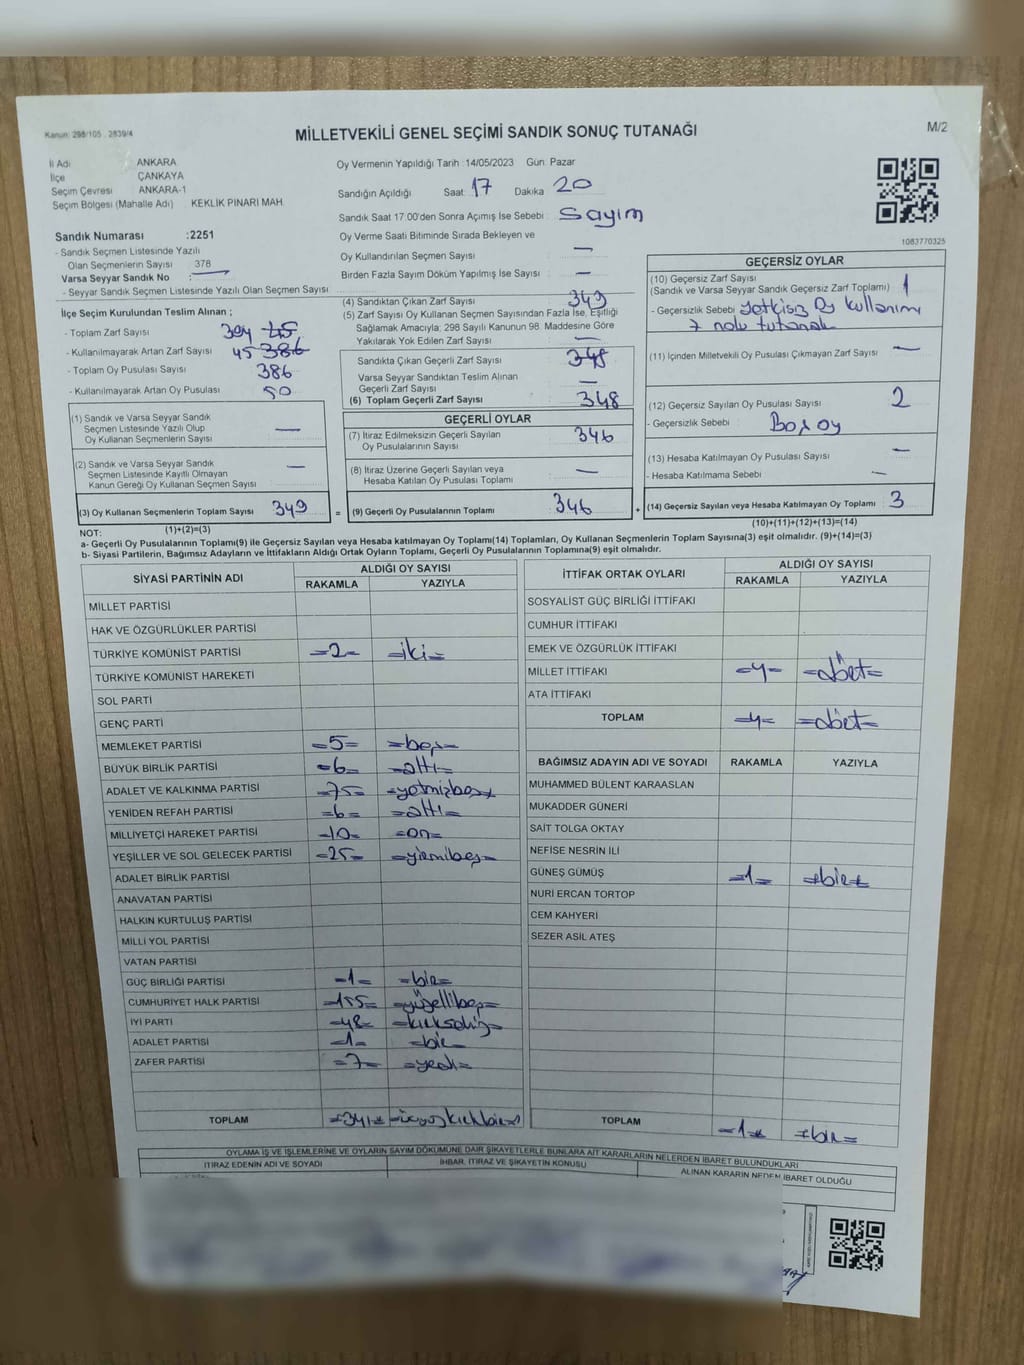 Kanun: 298/105 . 2839/4
MİLLETVEKİLİ GENEL SEÇİMİ SANDIK SONUÇ TUTANAĞI
M/2
İl Adı : ANKARA
İlçe : ÇANKAYA
Seçim Çevresi : ANKARA-1
Seçim Bölgesi (Mahalle Adı) : KEKLİK PINARI MAH.
Oy Vermenin Yapıldığı Tarih :14/05/2023 Gün: Pazar
Sandığın Açıldığı Saat 17 Dakika 20
Sandık Saat 17:00'den Sonra Açımış İse Sebebi : Sayım
Oy Verme Saati Bitiminde Sırada Bekleyen ve
Oy Kullandırılan Seçmen Sayısı : —
Birden Fazla Sayım Döküm Yapılmış İse Sayısı : —
1083770325
Sandık Numarası :2251
- Sandık Seçmen Listesinde Yazılı
Olan Seçmenlerin Sayısı : 378
Varsa Seyyar Sandık No : —
- Seyyar Sandık Seçmen Listesinde Yazılı Olan Seçmen Sayısı :
İlçe Seçim Kurulundan Teslim Alınan ;
- Toplam Zarf Sayısı : 394
- Kullanılmayarak Artan Zarf Sayısı : 45 386
- Toplam Oy Pusulası Sayısı : 386
- Kullanılmayarak Artan Oy Pusulası : 50
(1) Sandık ve Varsa Seyyar Sandık
Seçmen Listesinde Yazılı Olup
Oy Kullanan Seçmenlerin Sayısı : —
(2) Sandık ve Varsa Seyyar Sandık
Seçmen Listesinde Kayıtlı Olmayan
Kanun Gereği Oy Kullanan Seçmen Sayısı : —
(3) Oy Kullanan Seçmenlerin Toplam Sayısı : 349
(1)+(2)=(3)
(4) Sandıktan Çıkan Zarf Sayısı : 349
(5) Zarf Sayısı Oy Kullanan Seçmen Sayısından Fazla İse, Eşitliği
Sağlamak Amacıyla; 298 Sayılı Kanunun 98. Maddesine Göre
Yakılarak Yok Edilen Zarf Sayısı : —
Sandıkta Çıkan Geçerli Zarf Sayısı : 348
Varsa Seyyar Sandıktan Teslim Alınan
Geçerli Zarf Sayısı : —
(6) Toplam Geçerli Zarf Sayısı : 348
GEÇERLİ OYLAR
(7) İtiraz Edilmeksizin Geçerli Sayılan
Oy Pusulalarının Sayısı : 346
(8) İtiraz Üzerine Geçerli Sayılan veya
Hesaba Katılan Oy Pusulası Toplamı : —
= (9) Geçerli Oy Pusulalarının Toplamı : 346 +
GEÇERSİZ OYLAR
(10) Geçersiz Zarf Sayısı
(Sandık ve Varsa Seyyar Sandık Geçersiz Zarf Toplamı) : 1
- Geçersizlik Sebebi : Yetkisiz Oy Kullanımı
7 nolu tutanak
(11) İçinden Milletvekili Oy Pusulası Çıkmayan Zarf Sayısı : —
(12) Geçersiz Sayılan Oy Pusulası Sayısı : 2
- Geçersizlik Sebebi : Boş oy
(13) Hesaba Katılmayan Oy Pusulası Sayısı : —
- Hesaba Katılmama Sebebi : —
(14) Geçersiz Sayılan veya Hesaba Katılmayan Oy Toplamı : 3
(10)+(11)+(12)+(13)=(14)
NOT:
a- Geçerli Oy Pusulalarının Toplamı(9) ile Geçersiz Sayılan veya Hesaba katılmayan Oy Toplamı(14) Toplamları, Oy Kullanan Seçmenlerin Toplam Sayısına(3) eşit olmalıdır. (9)+(14)=(3)
b- Siyasi Partilerin, Bağımsız Adayların ve İttifakların Aldığı Ortak Oyların Toplamı, Geçerli Oy Pusulalarının Toplamına(9) eşit olmalıdır.
SİYASİ PARTİNİN ADI ALDIĞI OY SAYISI
RAKAMLA YAZIYLA
MİLLET PARTİSİ
HAK VE ÖZGÜRLÜKLER PARTİSİ
TÜRKİYE KOMÜNİST PARTİSİ =2= =iki=
TÜRKİYE KOMÜNİST HAREKETİ
SOL PARTİ
GENÇ PARTİ
MEMLEKET PARTİSİ =5= =beş=
BÜYÜK BİRLİK PARTİSİ =6= =altı=
ADALET VE KALKINMA PARTİSİ =75= =yetmişbeş=
YENİDEN REFAH PARTİSİ =6= =altı=
MİLLİYETÇİ HAREKET PARTİSİ =10= =on=
YEŞİLLER VE SOL GELECEK PARTİSİ =25= =yirmibeş=
ADALET BİRLİK PARTİSİ
ANAVATAN PARTİSİ
HALKIN KURTULUŞ PARTİSİ
MİLLİ YOL PARTİSİ
VATAN PARTİSİ
GÜÇ BİRLİĞİ PARTİSİ =1= =bir=
CUMHURİYET HALK PARTİSİ =155= =yüzellibeş=
İYİ PARTİ =48= =kırksekiz=
ADALET PARTİSİ =1= =bir=
ZAFER PARTİSİ =7= =yedi=
TOPLAM =341= =üçyüzkırkbir=
İTTİFAK ORTAK OYLARI ALDIĞI OY SAYISI
RAKAMLA YAZIYLA
SOSYALİST GÜÇ BİRLİĞİ İTTİFAKI
CUMHUR İTTİFAKI
EMEK VE ÖZGÜRLÜK İTTİFAKI
MİLLET İTTİFAKI =4= =dört=
ATA İTTİFAKI
TOPLAM =4= =dört=
BAĞIMSIZ ADAYIN ADI VE SOYADI RAKAMLA YAZIYLA
MUHAMMED BÜLENT KARAASLAN
MUKADDER GÜNERİ
SAİT TOLGA OKTAY
NEFİSE NESRİN İLİ
GÜNEŞ GÜMÜŞ =1= =bir=
NURİ ERCAN TORTOP
CEM KAHYERİ
SEZER ASİL ATEŞ
TOPLAM =1= =bir=
OYLAMA İŞ VE İŞLEMLERİNE VE OYLARIN SAYIM DÖKÜMÜNE DAİR ŞİKAYETLERLE BUNLARA AİT KARARLARIN NELERDEN İBARET BULUNDUKLARI
İTİRAZ EDENİN ADI VE SOYADI İHBAR, İTİRAZ VE ŞİKAYETİN KONUSU ALINAN KARARIN NEDEN İBARET OLDUĞU